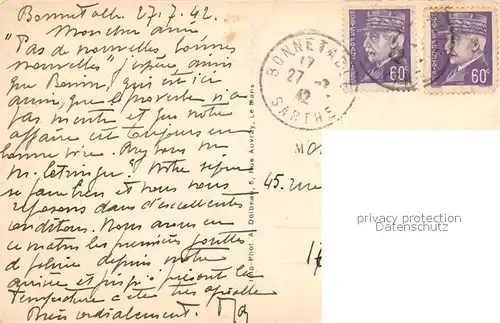 Bonnétable 27.7.42.
Mon cher ami
"Pas de nouvelles, bonnes
nouvelles" j'espère ainsi
que Bonne, qui est ici
aussi, que le proverbe n'a
pas menti et que notre
affaire est toujours en
bonne voie. Avez vous vu
Mr. Letringue? Notre séjour
se fait bien et nous nous
reposons dans d'excellentes
conditions. Nous avons eu
ce matin les premières gouttes
de pluie depuis notre
arrivée et jusqu'à présent la
température a été très agréable
Bien cordialement.
BONNETABLE
17
27 -7
42
SARTHE
60c
60c
Imp.-Phot. A. Dolbeau, 6, Rue Auvray, Le Mans
MO
45. rue
privacy protection
Datenschutz